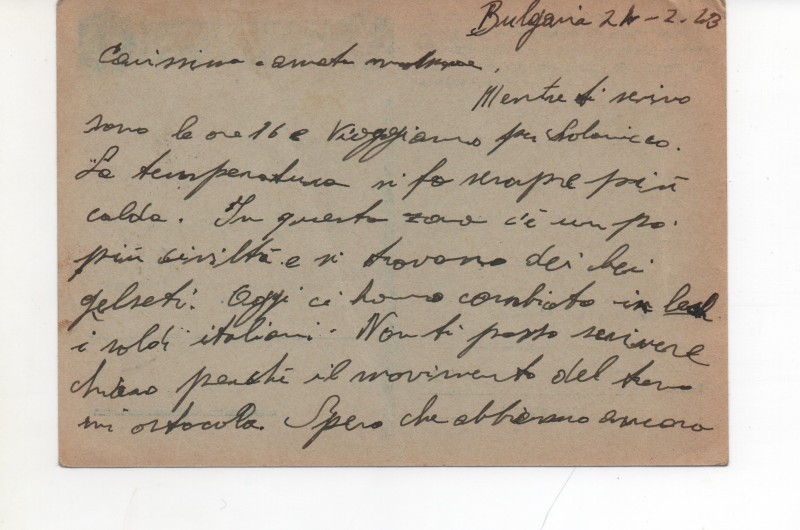 Bulgaria 24-2-43
Carissima amata
Mentre ti scrivo
sono le ore 16 e viaggiamo per Salonicco.
La temperatura si fa sempre più
calda. In questa zona c'è un po'
più civiltà e si trovano dei bei
gelseti. Oggi ci hanno cambiato in
i soldi italiani. Non ti posso scrivere
chiaro perchè il movimento del treno
mi ostacola. Spero che abbiamo ancora